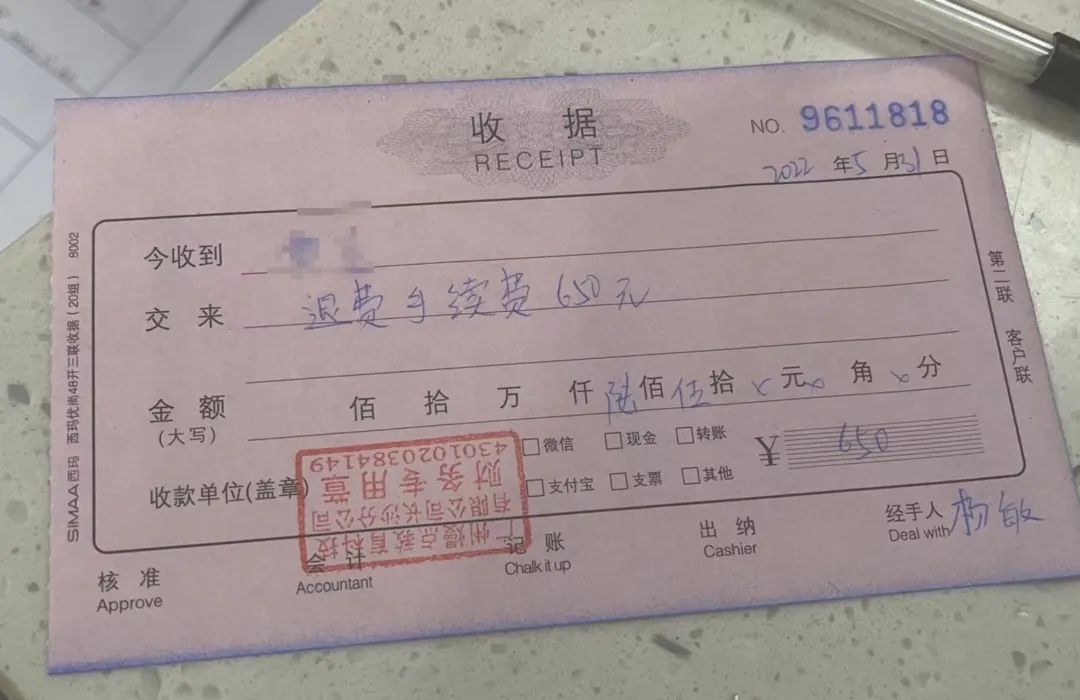 收 据
RECEIPT
NO. 9611818
2022 年 5 月 31 日
今收到
交 来 退费手续费 650元
金 额 佰 拾 万 仟 陆 佰 伍 拾 x 元 x 角 x 分
(大写)
收款单位(盖章) □微信 □现金 □转账 ¥ 650
□支付宝 □支票 □其他
州慢点教育科技
有限公司长沙分公司
财务专用章
4301020384149
核 准
Approve
会 计
Accountant
记 账
Chalk it up
出 纳
Cashier
经手人 杨敏
Deal with
SIMAA西玛 西玛优尚48开三联收据(20组) 8002
第二联 客户联